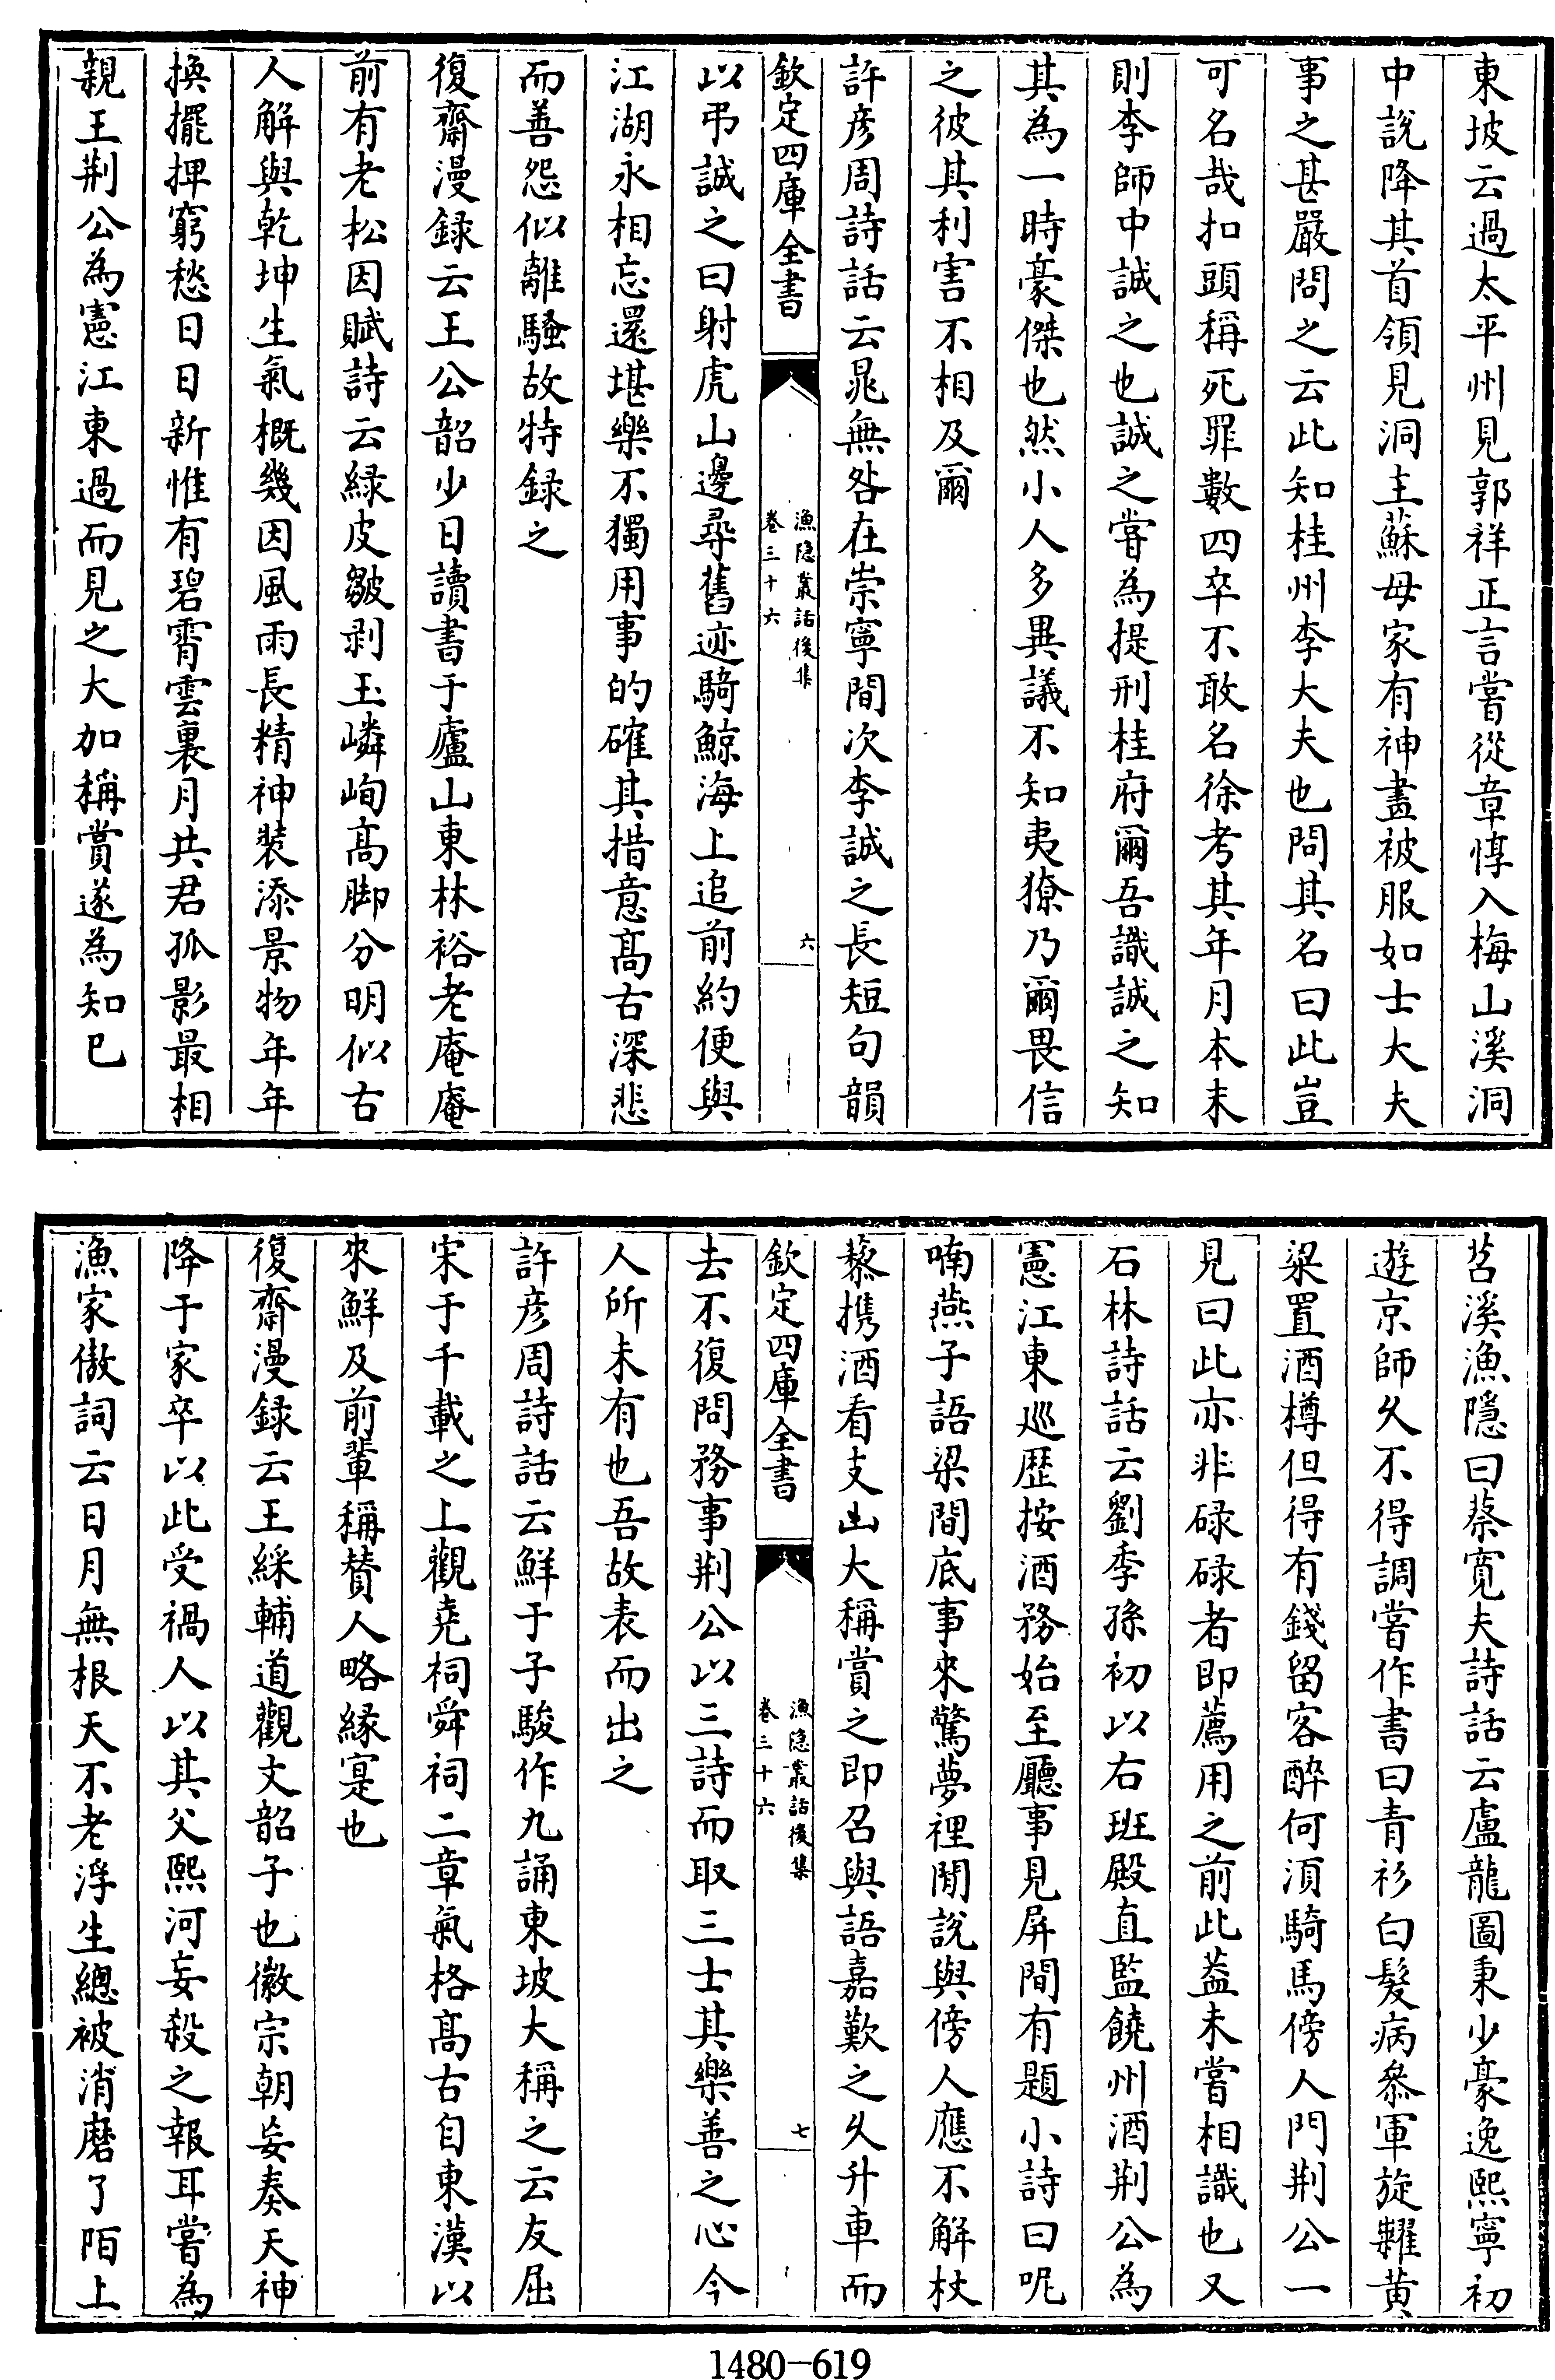 東坡云過太平州見郭祥正言嘗從章惇入梅山溪洞
中說降其首領見洞主蘇母家有神畫被服如士大夫
事之甚嚴問之云此知桂州李大夫也問其名曰此豈
可名哉扣頭稱死罪數四卒不敢名徐考其年月本末
則李師中誠之也誠之嘗為提刑桂府爾吾識誠之知
其為一時豪傑也然小人多異議不知夷獠乃爾畏信
之彼其利害不相及爾
許彦周詩話云晁無咎在崇寧間次李誠之長短句韻
欽定四庫全書
漁隐叢話後集
卷三十六
六
以弔誠之曰射虎山邊尋舊迹騎鯨海上追前約便與
江湖永相忘還堪樂不獨用事的確其措意髙古深悲
而善怨似離騷故特録之
復齋漫録云王公韶少日讀書于廬山東林裕老庵庵
前有老松因賦詩云緑皮皺剥玉嶙峋髙脚分明似古
人解與乾坤生氣概幾因風雨長精神裝添景物年年
換擺捭窮愁日日新惟有碧霄雲裏月共君孤影最相
親王荆公為憲江東過而見之大加稱賞遂為知已
苕溪漁隱曰蔡寛夫詩話云盧龍圖秉少豪逸熙寧初
遊京師久不得調嘗作書曰青衫白髮病叅軍旋糶黄
粱置酒樽但得有錢留客醉何須騎馬傍人門荆公一
見曰此亦非碌碌者即薦用之前此葢未嘗相識也又
石林詩話云劉季孫初以右班殿直監饒州酒荆公為
憲江東廵歴按酒務始至廳事見屏間有題小詩曰呢
喃燕子語梁間底事來驚夢裡閒說與傍人應不解杖
藜携酒看支山大稱賞之即召與語嘉歎之久升車而
欽定四庫全書
漁隐叢話後集
卷三十六
七
去不復問務事荆公以三詩而取三士其樂善之心今
人所未有也吾故表而出之
許彦周詩話云鮮于子駿作九誦東坡大稱之云友屈
宋于千載之上觀尭祠舜祠二章氣格髙古自東漢以
來鮮及前輩稱賛人略緣寔也
復齋漫録云王綵輔道觀文韶子也徽宗朝妄奏天神
降于家卒以此受禍人以其父熙河妄殺之報耳嘗為
漁家傲詞云日月無根天不老浮生總被消磨了陌上
1480-619